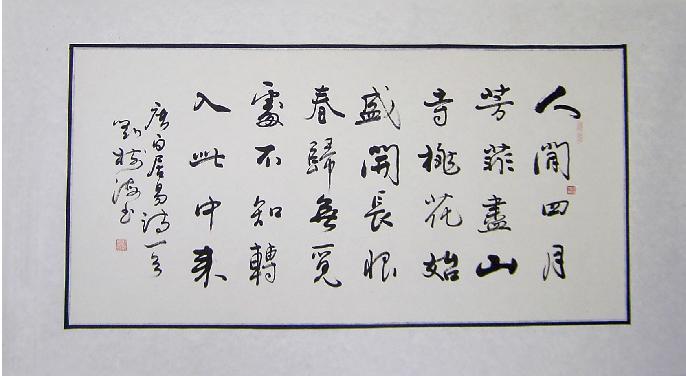 人間四月
芳菲盡山
寺桃花始
盛開長恨
春歸無覓
處不知轉
入此中来
唐白居易詩一首
劉樹海书